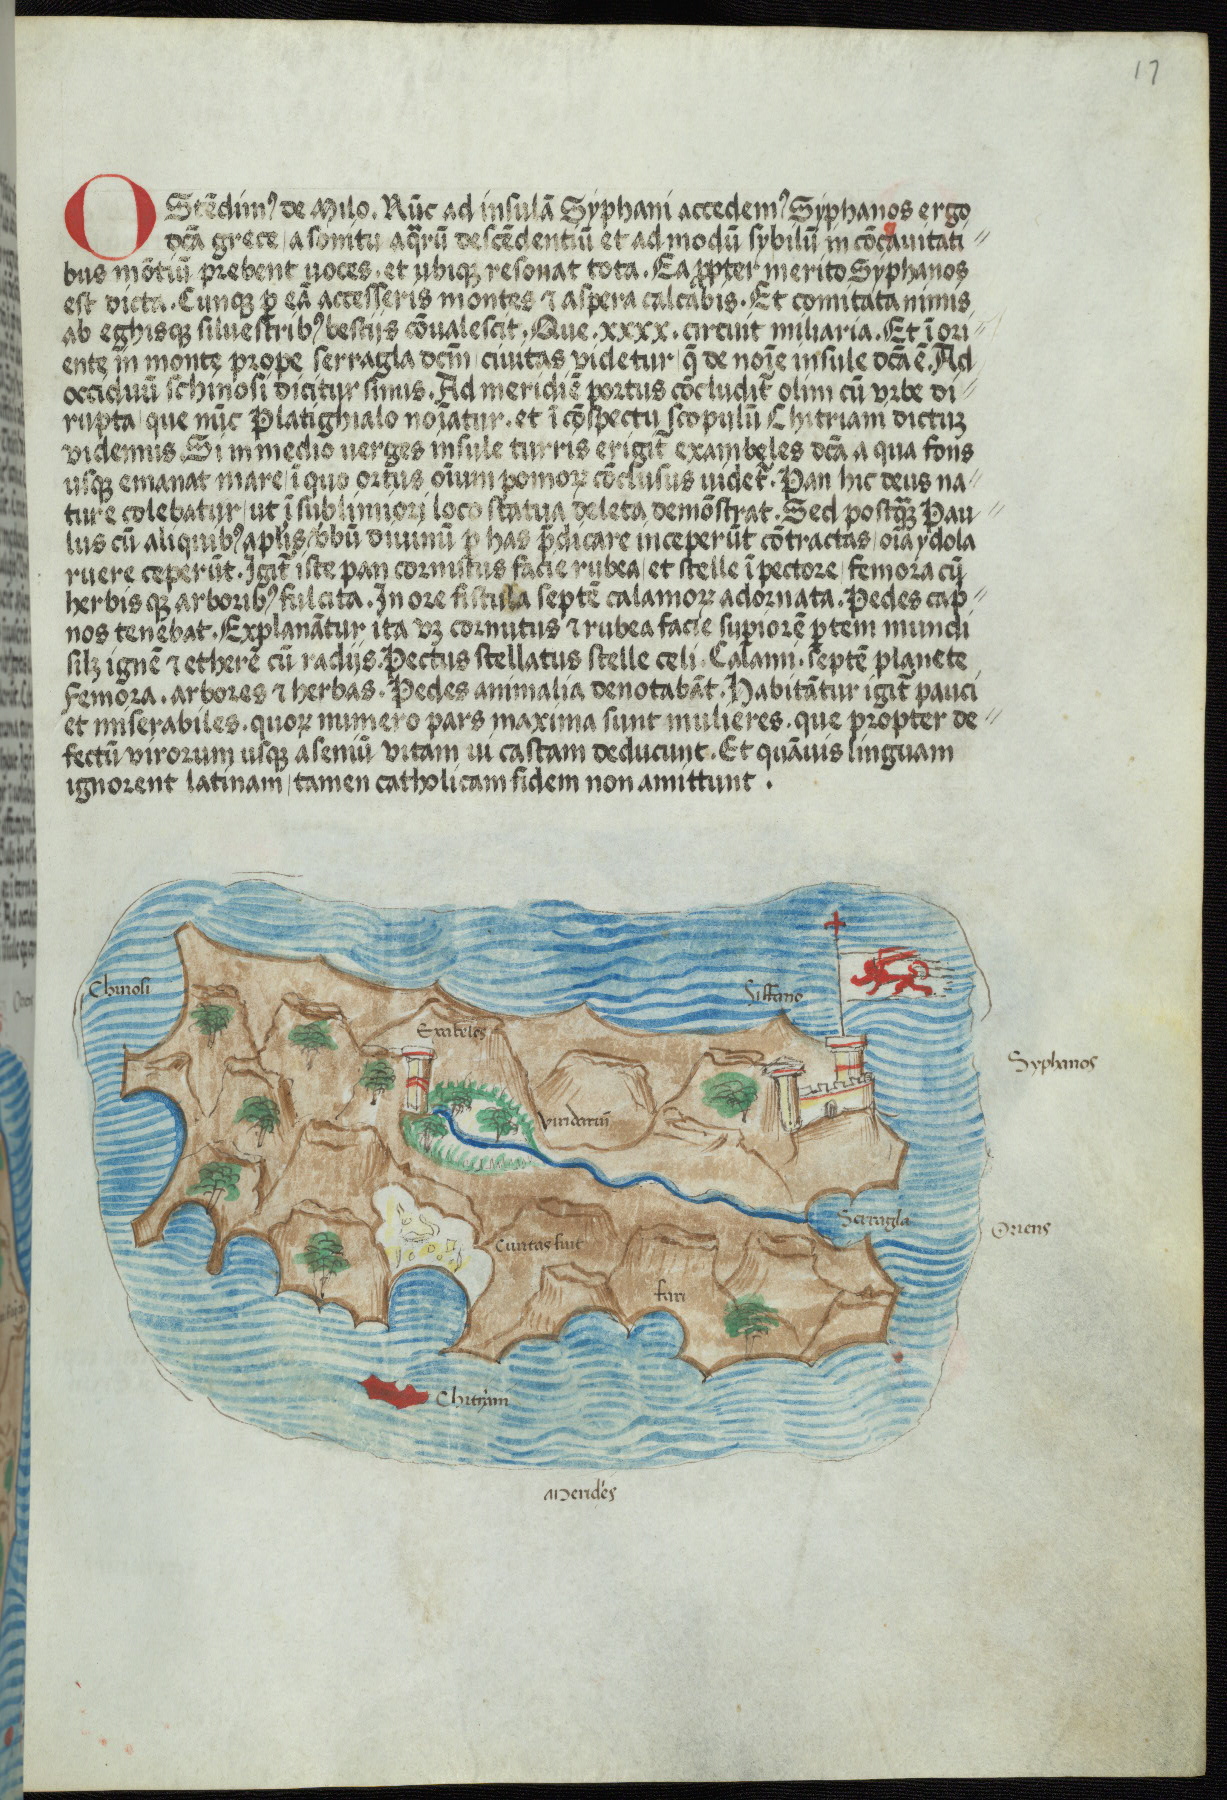 17
OStēdimꝰ de Milo. Nūc ad insulā Syphani accedemꝰ Syphanos ergo
dc̄a grece / a sonitu aq̄rū descēdentiū et ad modū sybilū in cōcauitati
bus mōtiū prebent uoces. et ubiqꝫ resonat tota. Ea ꝓpter merito Syphanos
est dicta. Cunqꝫ p eā accesseris montes ⁊ aspera calcabis. Et comitata nimis
ab eghisqꝫ siluestribꝰ bestijs cōualescit. Que .xxxx. circuit miliaria. Et ī ori
ente in monte prope serragla dcm̄ / ciuitas videtur / q̄ de noīe insule dc̄a ē. Ad
occiduū schinosi dicitur sinus. Ad meridiē portus cōcludit̄ olim cū vrbe di
rupta / que nūc Platighialo noīatur. et ī cōspectu scopulū Chitriam dictuꝫ
videmus. Si in medio uerges insule turris erigit̄ exambeles dc̄a a qua fons
usqꝫ emanat mare / ī quo ortus oīum pomoꝝ cōclusus uidet̄. Pan hic deus na
ture colebatur / ut ī sublimiori loco statua deleta demōstrat. Sed postq̄ꝫ Pau
lus cū aliquibꝰ aplīs / v̄bū diuinū p has p̄dicare inceperūt cōtractas / oīa ydola
ruere ceperūt. Igit̄ iste pan cornutus facie rubea / et stelle ī pectore / femora cū
herbis qꝫ arboribꝰ fulcita. In ore fistula septē calamoꝝ adornata. Pedes cap
nos tenebat. Explanātur ita vꝫ cornutus ⁊ rubea facie supiorē ptem mundi
silꝫ ignē ⁊ etherē cū radijs. Pectus stellatus stelle celi. Calami. septē planete
Femora. arbores ⁊ herbas. Pedes animalia denotabāt. Habitātur igit̄ pauci
et miserabiles. quoꝝ numero pars maxima sunt mulieres. que propter de
fectū virorum usqꝫ a seniū vitam in castam deducunt. Et quāuis linguam
ignorent latinam / tamen catholicam fidem non amittunt.
Chinosi
Siffano
Exabeles
Syphanos
viridariū
Serragla
Oriens
Ciuitas fuit
fari
Chitriam
Meridẽs